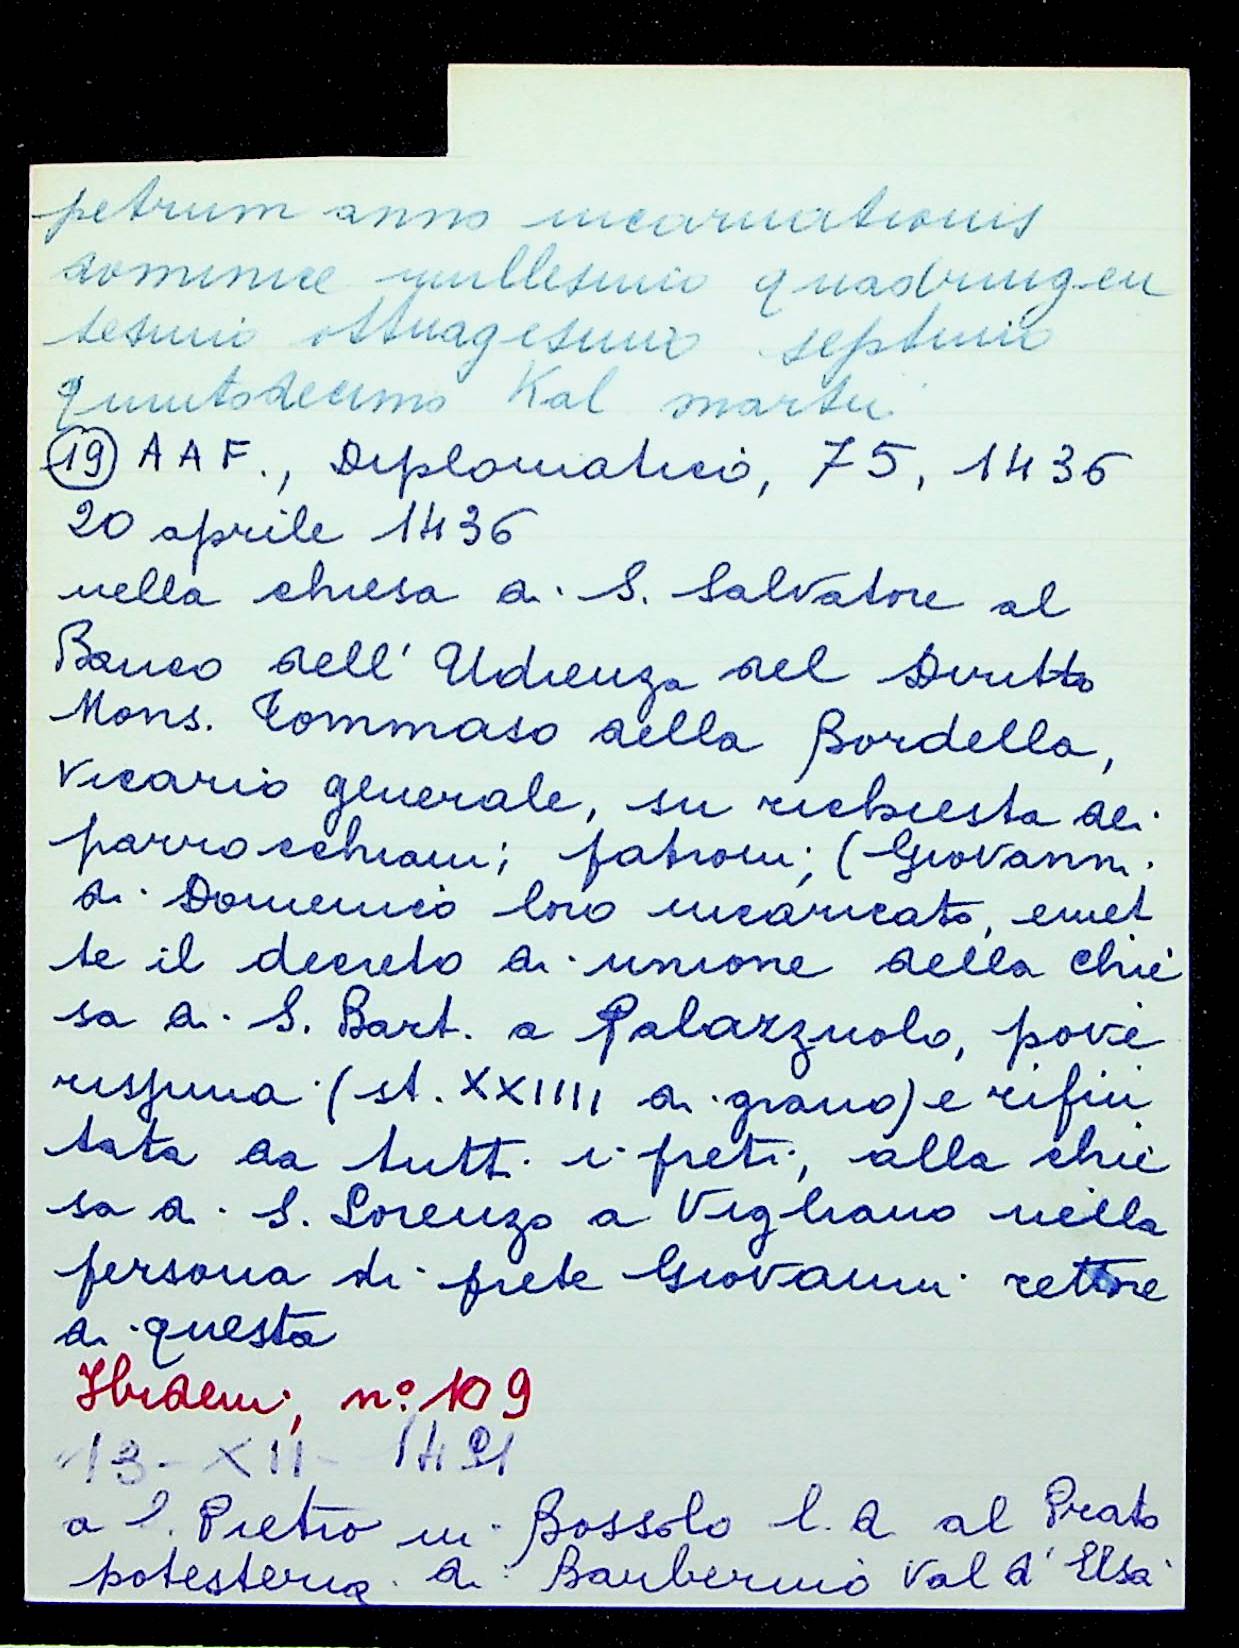 petrum anno incarnationis
dominice millesimo quadringen
tesimo ottuagesimo septimo
quintodecimo Kal martii
(19) A A F., Diplomatico, 75, 1436
20 aprile 1436
nella chiesa di S. Salvatore al
Banco dell' Udienza del Diritto
Mons. Tommaso della Bordella,
Vicario generale, su richiesta dei
parrocchiani, patroni, (Giovanni
di Domenico loro incaricato, emet
te il decreto di unione della chie
sa di S. Bart. a Palazzuolo, pove
rissima (st. XXIIII di grano) e rifiu
tata da tutti i preti, alla chie
sa di S. Lorenzo a Vigliano nella
persona di prete Giovanni rettore
di questa
Ibidem, n° 109
13 - XII - 1491
a S. Pietro in Bossolo l. d. al Prato
potesteria di Barberino Val d' Elsa